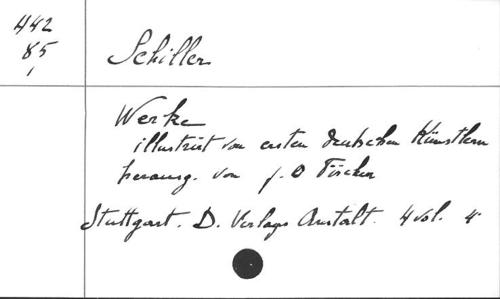 442
85
Schiller
Werke
illustrirt von ersten deutschen Künstlern
herausg. von J. O Fischer
Stuttgart. D. Verlags Anstalt. 4 vol. 4°